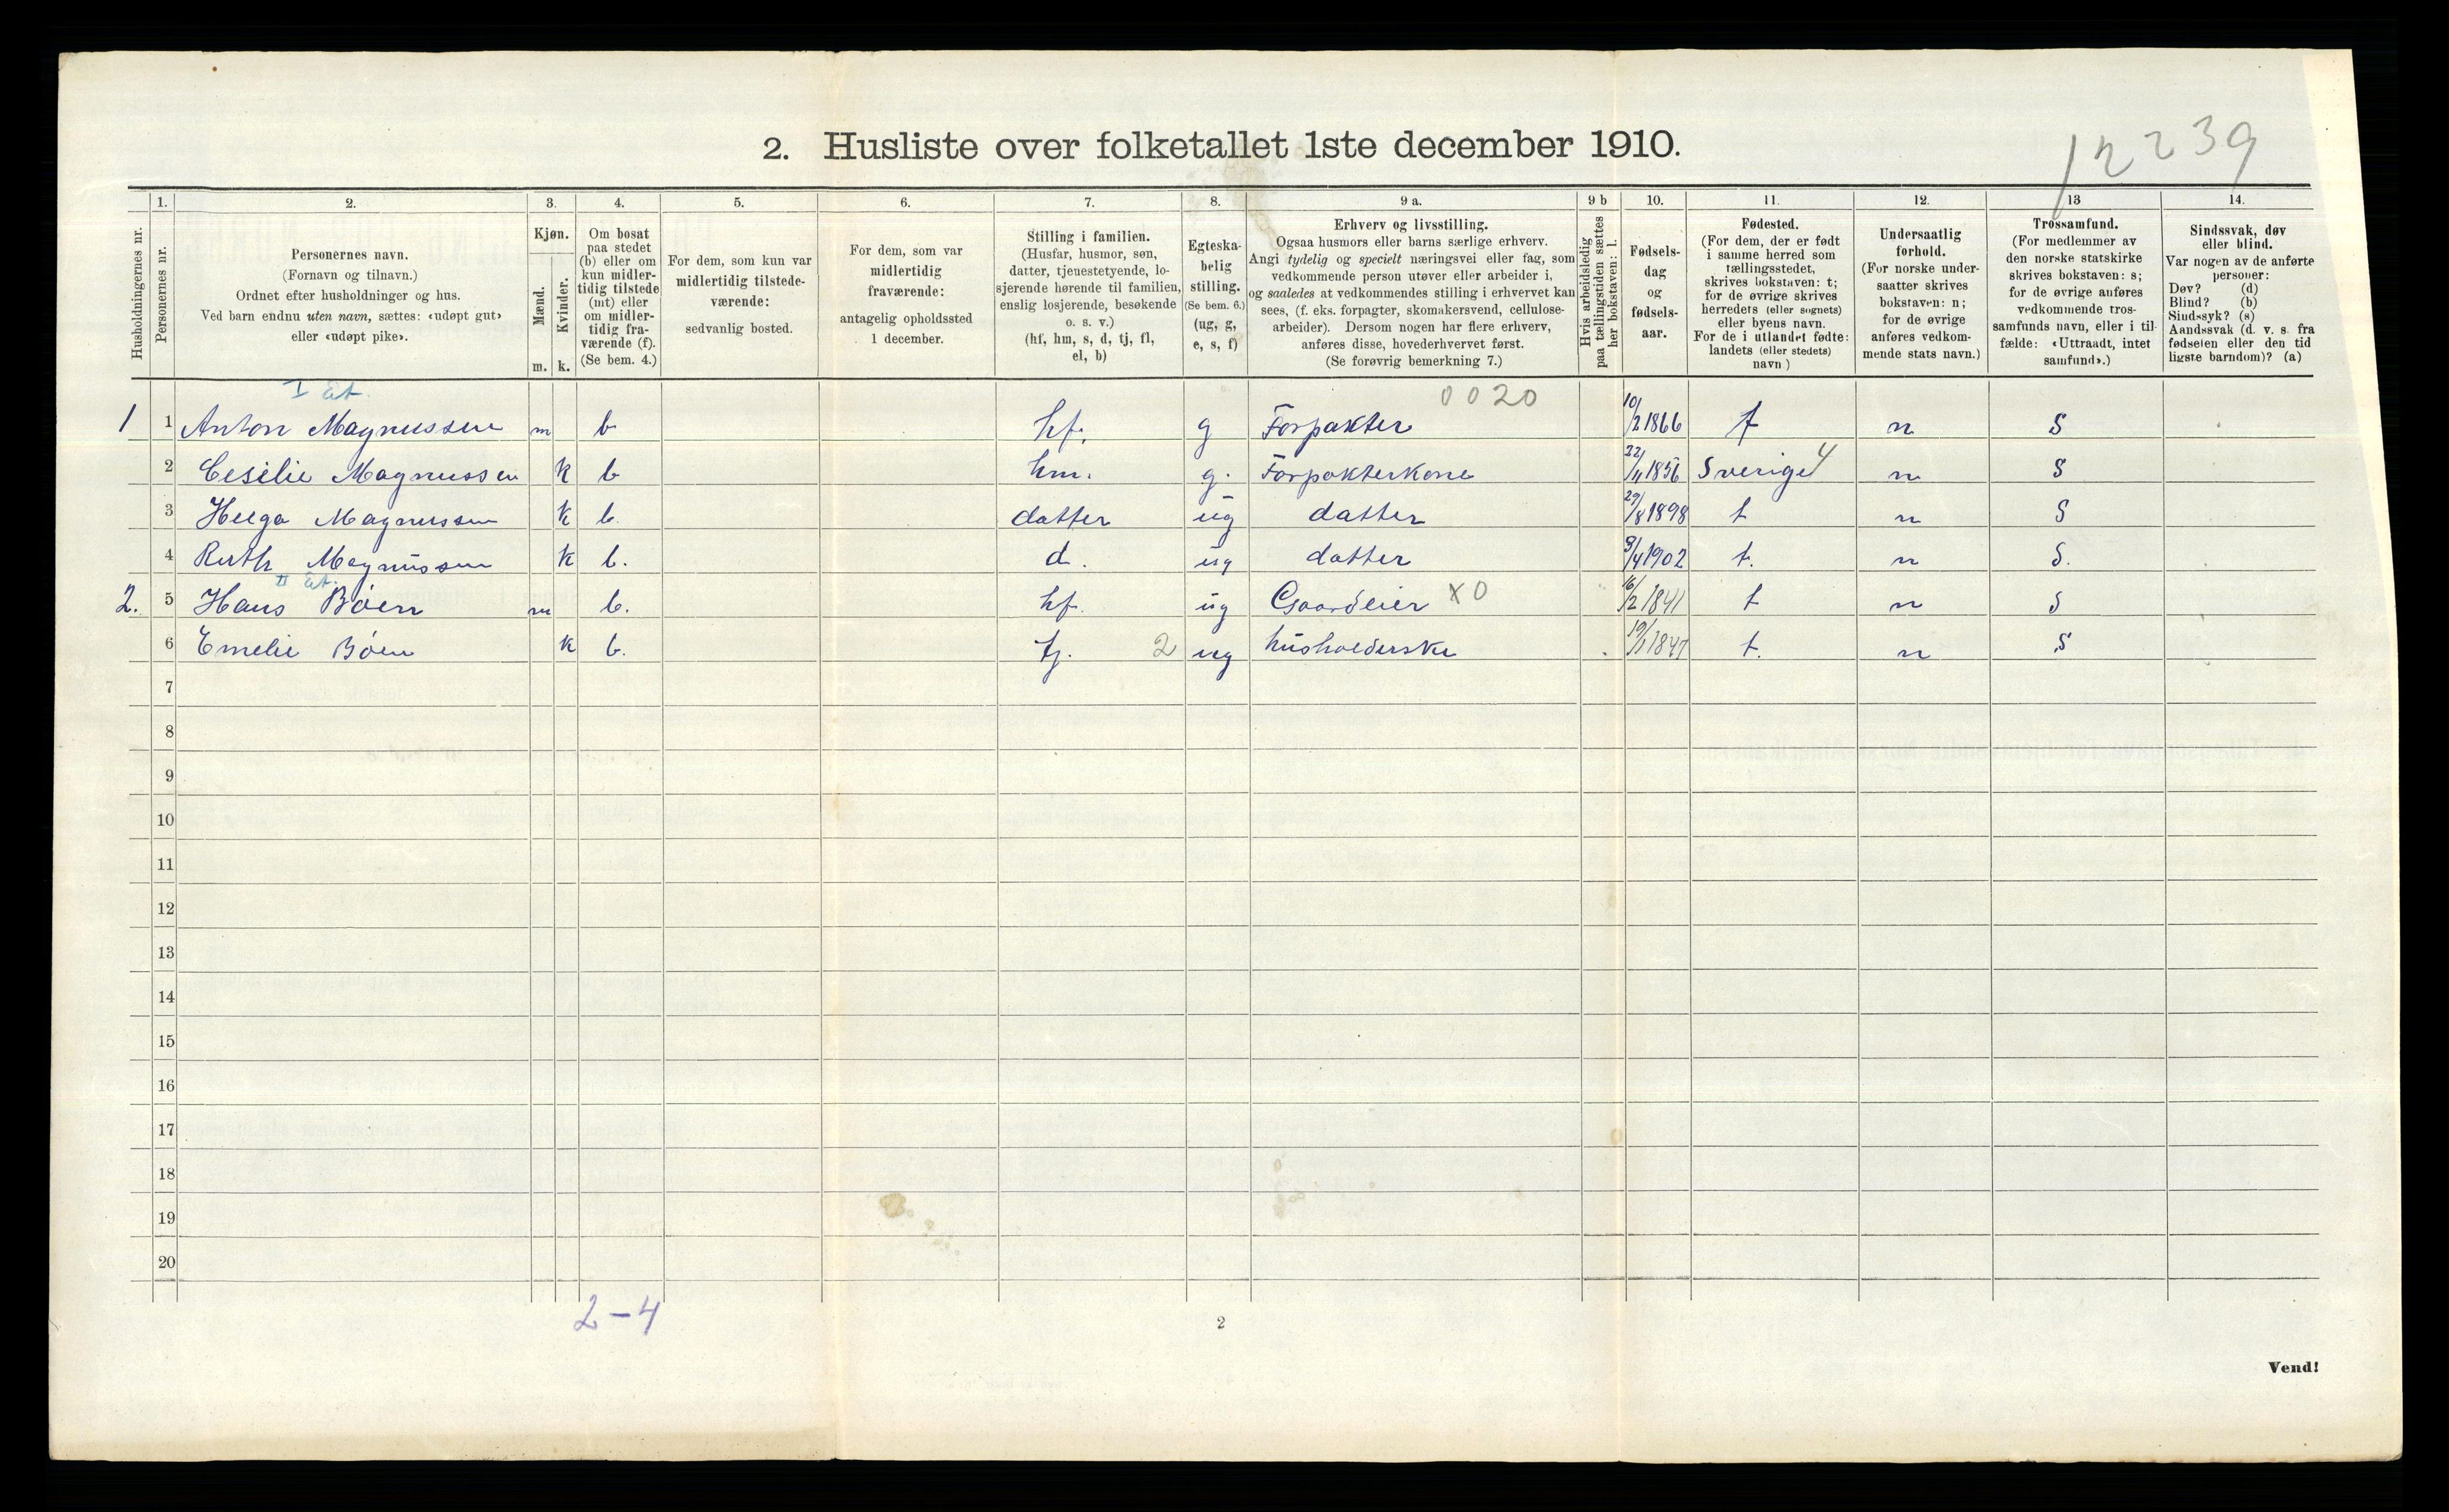 12239
2. Husliste over folketallet 1ste december 1910.
Husholdningernes nr.
1.
Personernes nr.
2.
Personernes navn.
(Fornavn og tilnavn.)
Ordnet efter husholdninger og hus.
Ved barn endnu uten navn, sættes: «udøpt gut»
eller «udøpt pike».
3.
Kjøn.
Mænd.
Kvinder.
m. k.
4.
Om bosat
paa stedet
(b) eller om
kun midler-
tidig tilstede
(mt) eller
om midler-
tidig fra-
værende (f).
(Se bem. 4.)
5.
For dem, som kun var
midlertidig tilstede-
værende:
sedvanlig bosted.
6.
For dem, som var
midlertidig
fraværende:
antagelig opholdssted
1 december.
7.
Stilling i familien.
(Husfar, husmor, søn,
datter, tjenestetyende, lo-
sjerende hørende til familien,
enslig losjerende, besøkende
o. s. v.)
(hf, hm, s, d, tj, fl,
el, b)
8.
Egteska-
belig
stilling.
(Se bem. 6.)
(ug, g,
e, s, f)
9 a.
Erhverv og livsstilling.
Ogsaa husmors eller barns særlige erhverv.
Angi tydelig og specielt næringsvei eller fag, som
vedkommende person utøver eller arbeider i,
og saaledes at vedkommendes stilling i erhvervet kan
sees, (f. eks. forpagter, skomakersvend, cellulose-
arbeider). Dersom nogen har flere erhverv,
anføres disse, hovederhvervet først.
(Se forøvrig bemerkning 7.)
9 b
Hvis arbeidsledig
paa tællingstiden sættes
her bokstaven: l.
10.
Fødsels-
dag
og
fødsels-
aar.
11.
Fødested.
(For dem, der er født
i samme herred som
tællingsstedet,
skrives bokstaven: t;
for de øvrige skrives
herredets (eller sognets)
eller byens navn.
For de i utlandet fødte:
landets (eller stedets)
navn)
12.
Undersaatlig
forhold.
(For norske under-
saatter skrives
bokstaven: n;
for de øvrige
anføres vedkom-
mende stats navn.)
13
Trossamfund.
(For medlemmer av
den norske statskirke
skrives bokstaven: s;
for de øvrige anføres
vedkommende tros-
samfunds navn, eller i til-
fælde: «Uttraadt, intet
samfund».)
14.
Sindssvak, døv
eller blind.
Var nogen av de anførte
personer:
Døv? (d)
Blind? (b)
Sindssyk? (s)
Aandssvak (d. v. s. fra
fødselen eller den tid
ligste barndom)? (a)
I Et. 0020
1 1 Anton Magnussen m b hf. g Forpakter 10/2 1866 t n S
2 Cesilie Magnussen k b hm. g. Forpakterkone 22/11 1856 Sverige 4 n S
3 Helga Magnussen k b. datter ug datter 29/8 1898 t n S
4 Ruth Magnussen k b. d. ug datter 3/4 1902 t. n S.
II Et.
2. 5 Hans Bøen m b. hf. ug Gaardeier X0 16/2 1841 t n S
6 Emelie Bøen k b. tj. 2 ug husholderske 19/1 1847 t. n S
7
8
9
10
11
12
13
14
15
16
17
18
19
20
2-4
2
Vend!